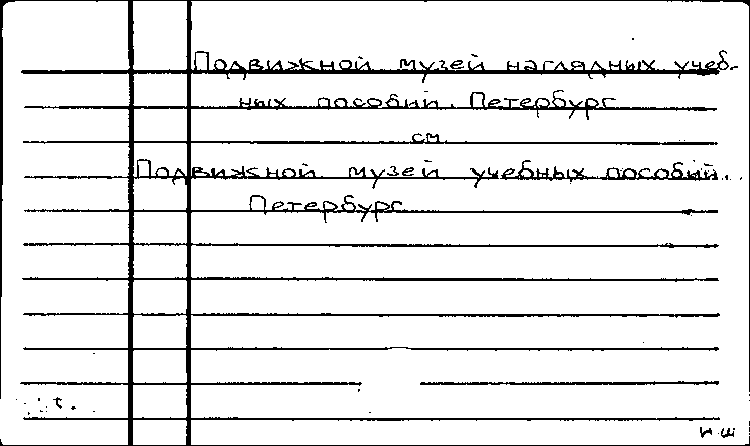 Подвижной музей наглядных учеб-
ных пособий. Петербург
см.
Подвижной музей учебных пособий.
Петербург